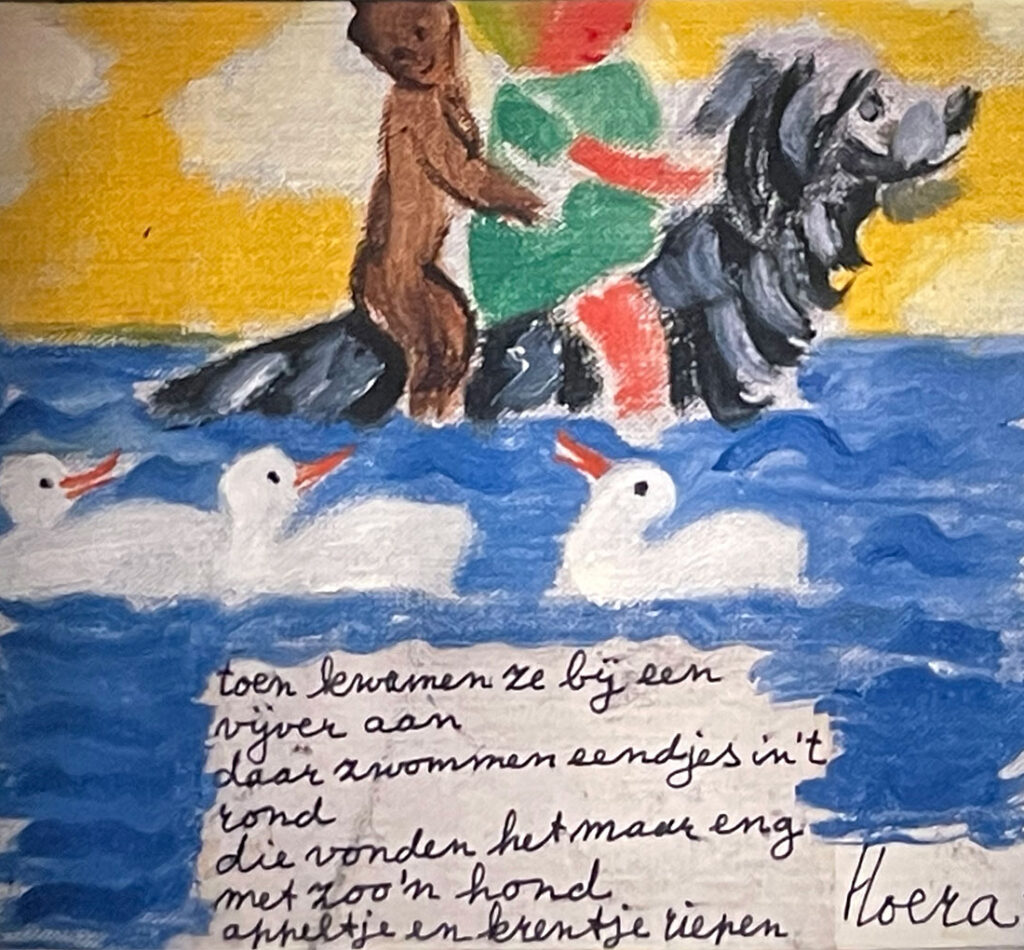 toen kwamen ze bij een
vijver aan
daar zwommen eendjes in't
rond
die vonden het maar eng
met zoo'n hond
appeltje en krentje riepen
Hoera